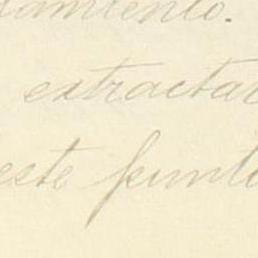 amiento.
extractar
este punto